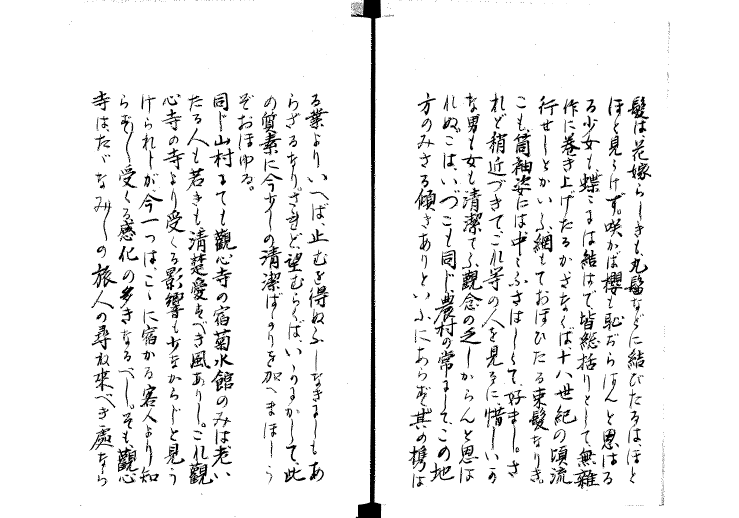 髪は、花嫁らしきも、丸髷などに結びたるは、ほと
ほと見うけず。咲かば櫻も恥ぢらはんと思はる
る少女も、蝶々には結はで、皆総括りとして、無雜
作に巻き上げたるか、さなくは十八世紀の頃流
行せしとかいふ、網もておほひたる束髮なりき。
こも、筒袖姿には中々ふさはしとて、好まし。さ
れど稍近づきてこれ等の人を見るに、惜しいか
な男も女も清潔てふ觀念の乏しからんと思は
れぬ。こは、いづこも同じ農村の常にして、この地
方のみさる傾きありといふにあらず、其の携は
る業よりいへば、止むを得ぬふしなきにしもあ
らざるなり。されど、望むらくは、いかにかして、此
の質素に今少しの清潔ばかりを加へまほしう
ぞおぼゆる。
同じ山村にても、觀心寺の宿菊水館のみは、老い
たる人も若きも清楚愛すべき風ありし。これ觀
心寺の寺より受くる影響も少なからじと見う
けられしが、今一つは、こゝに宿かる客人より知
らずしらず受くる感化の多きなるべし。そも、觀心
寺は、たゞなみなみの旅人の尋ね來べき處なら